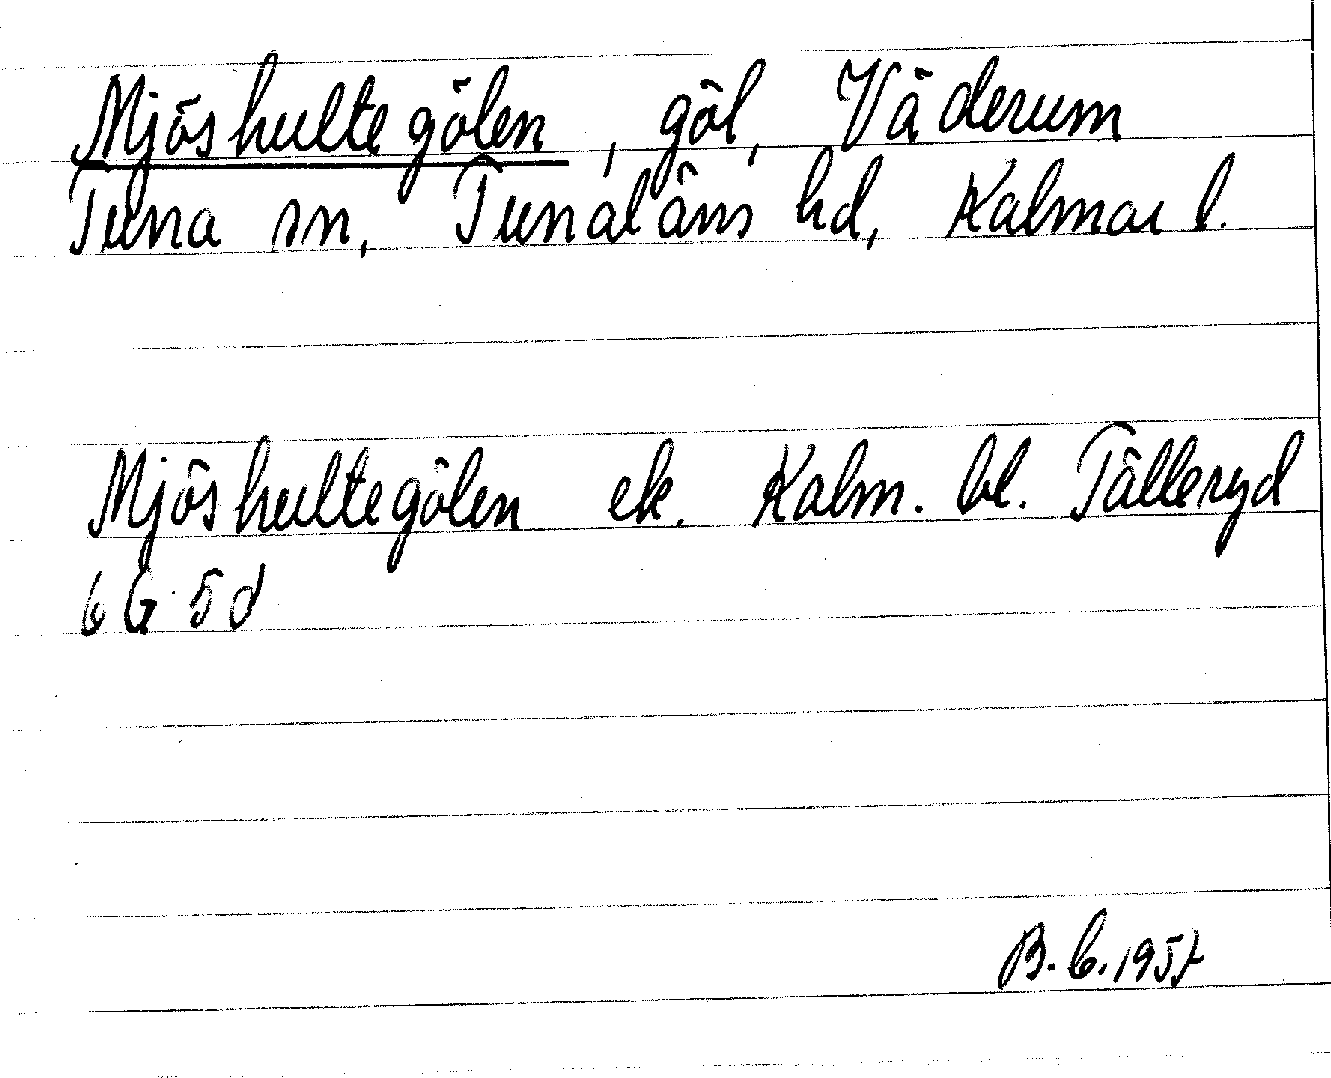 Mjöshultegölen, göl, Väderum
Tuna sn, Tunaläns hd, Kalmar l.
Mjöshultegölen ek. Kalm. bl. Tälleryd
6 G 5 d
B. 6. 1957